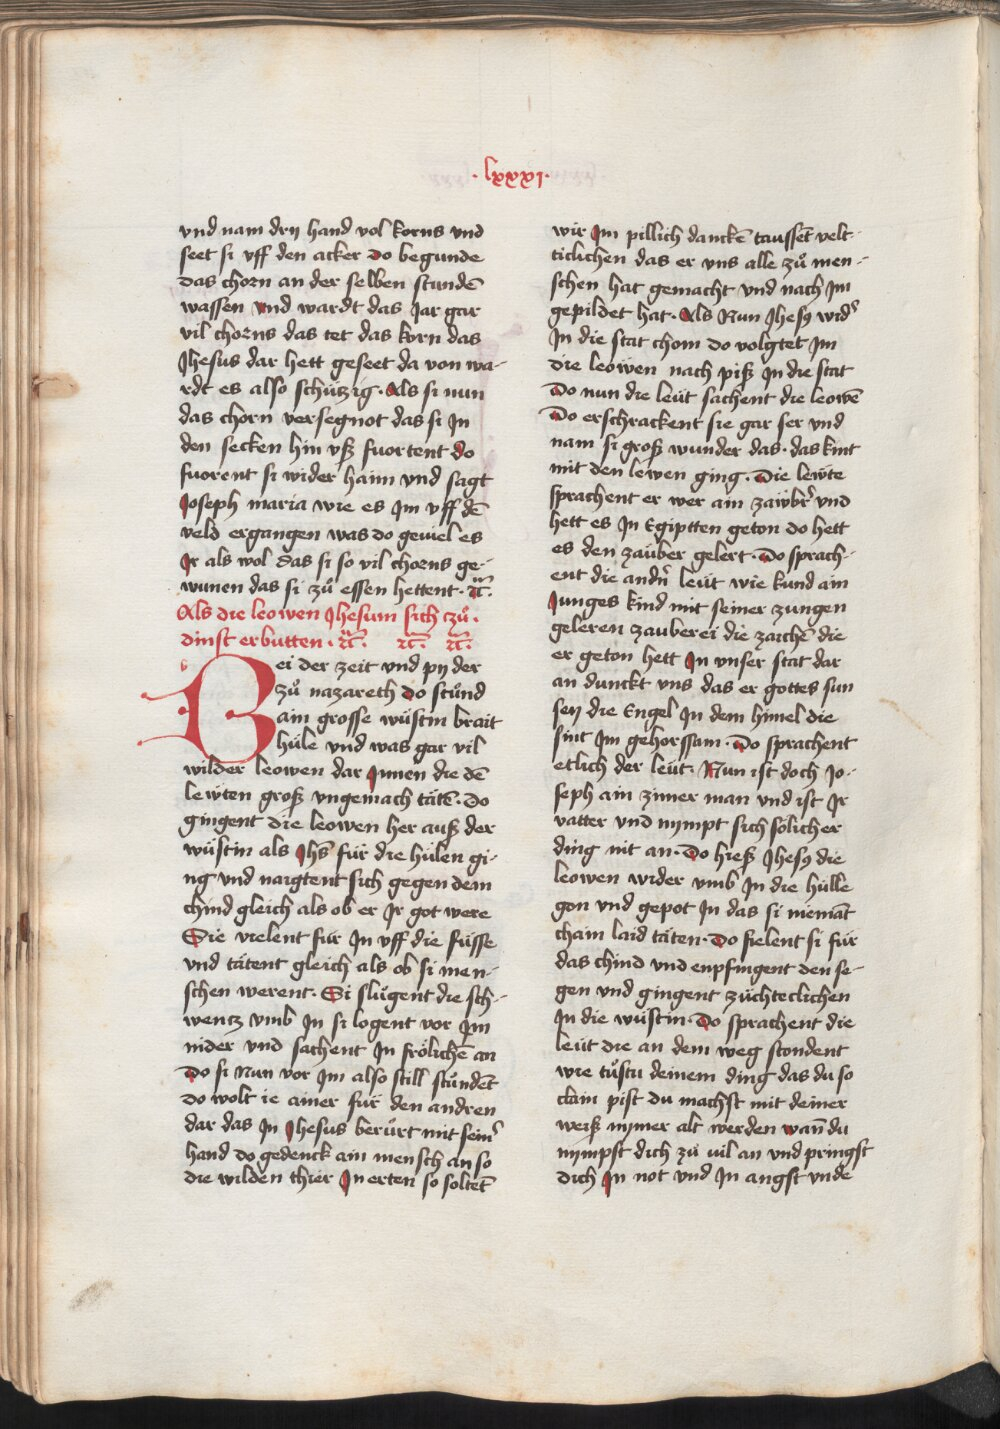 · lxxxj ·
vnd nam drij hand vol korns vnd
seet si vff den acker do begunde
das chorn an der selben stundē
wassen vnd wardt das Jar gar
vil chorns das tet das korn das
Jhesus dar hett geseet da von wa-
rdt es also schützig · Als si nun
das chorn versegnot das si Jn
den secken hin vsz fuortent do
fuorent si wider haim vnd sagt
Joseph maria wie es Jm vff dē
veld ergangen was do geuiel es
Jr als wol das si so vil chorns ge-
wunen das si zů essen hettent · ꝛc̄ ·
Als die leowen Jhesum sich czů ·
dinst erbutten · ꝛc̄ · ꝛc̄ · ꝛc̄ ·
Bei der zeit vnd pij der
zů nazareth do stůnd
ain grosse wüstin brait
hüle vnd was gar vil
wilder leowen dar Jnnen die dē
lewten grosz vngemach tätē · do
gingent die leowen her ausz der
wüstin als Jhs̄ für die hülen gi-
ng vnd naigtent sich gegen dem
chind gleich als ob er Jr got were
Sie vielent für Jn vff die füsse
vnd tätent gleich als ob si men-
schen werent · Si slůgent die sch-
wencz vmb Jn si logent vor Jm
nider vnd sachent Jn frölichē an
Do si Nun vor Jm also still stůndēt
do wolt ie ainer für den andren
dar das Jn Jhesus berůrt mit sein᷑
hand do gedenck ain mensch an so
die wilden thier Jn erten so soltēt
wir Jm pillich danckē taussēt velt-
ticlichen das er vns alle zů men-
schen hat gemacht vnd nach Jm
gepildet hat · Als Nun Jhesꝫ wid᷑
Jn die stat chom do volgtet Jm
die leowen nach pisz Jn die stat
Do nun die leüt sachent die leowē
Do erschrackent sie gar ser vnd
nam si grosz wunder das · das kint
mit den lewen ging · Die lewte
sprachent er wer ain zawbr᷑ vnd
hett es Jn Egiptten geton do hett
es den zauber gelert · Do sprach-
ent die andn᷑ leüt wie kund ain
Junges kind mit seiner zungen
geleren zauberei die zaichē die
er geton hett Jn vnser stat dar
an dunckt vns das er gottes sun
seij die Engel Jn dem himel die
sint Jm gehorssam · Do sprachent
etlich der leüt · Nun ist doch Jo-
seph ain zimer man vnd ist Jr
vatter vnd nympt sich sölicher
ding nit an · Do hiesz Jhesꝫ die
leowen wider vmb Jn die hülle
gon vnd gepot Jn das si niemāt
chain laid täten · Do fielent si für
das chind vnd enpfingent den se-
gen vnd gingent züchteclichen
Jn die wüstin · Do sprachent die
leüt die an dem weg stondent
wie tůstu deinem ding das du so
clain pist du machst mit deiner
weisz nymer alt werden wan̄ du
nympst dich zů uil an vnd pringst
dich Jn not vnd Jn angst vnde